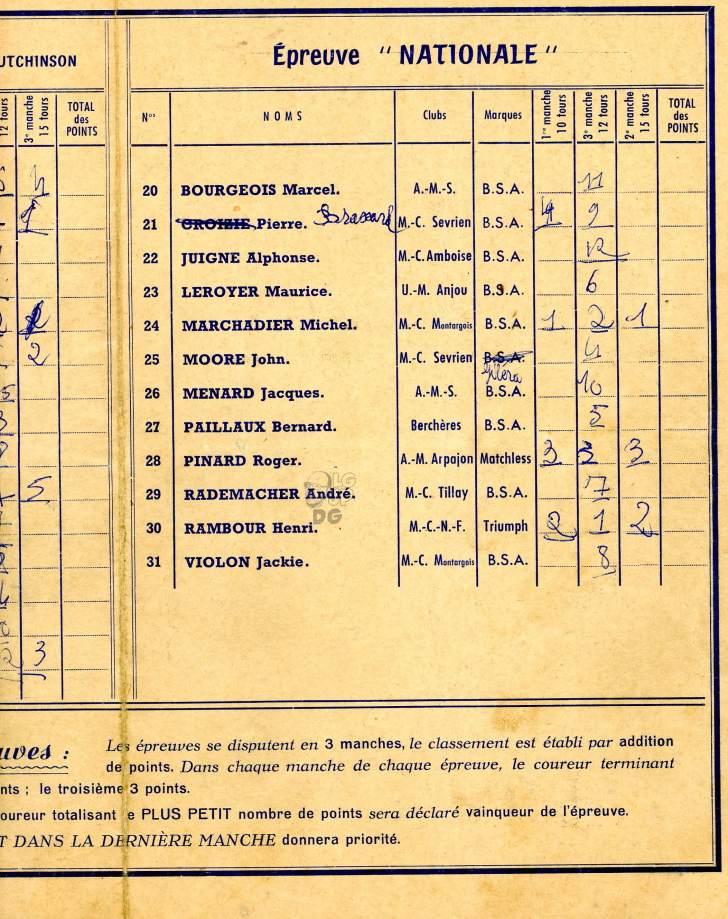 UTCHINSON
Épreuve "NATIONALE"
12 tours
3e manche 15 tours
TOTAL des POINTS
Nos NOMS Clubs Marques 1re manche 10 tours 3e manche 12 tours 2e manche 15 tours TOTAL des POINTS
20 BOURGEOIS Marcel. A.-M.-S. B.S.A. 11
21 CROIZIE Pierre. Brassard M.-C. Sevrien B.S.A. 4 9
22 JUIGNE Alphonse. M.-C. Amboise B.S.A. 12
23 LEROYER Maurice. U.-M. Anjou B.S.A. 6
24 MARCHADIER Michel. M.-C. Montargois B.S.A. 1 2 1
2 25 MOORE John. M.-C. Sevrien B.S.A. 4
Giléra
26 MENARD Jacques. A.-M.-S. B.S.A. 10
27 PAILLAUX Bernard. Berchères B.S.A. 5
28 PINARD Roger. A.-M. Arpajon Matchless 3 3 3
5 29 RADEMACHER André. M.-C. Tillay B.S.A. 7
30 RAMBOUR Henri. M.-C.-N.-F. Triumph 2 1 2
31 VIOLON Jackie. M.-C. Montargois B.S.A. 8
3
DG
uves : Les épreuves se disputent en 3 manches, le classement est établi par addition
de points. Dans chaque manche de chaque épreuve, le coureur terminant
nts ; le troisième 3 points.
oureur totalisant le PLUS PETIT nombre de points sera déclaré vainqueur de l'épreuve.
T DANS LA DERNIÈRE MANCHE donnera priorité.